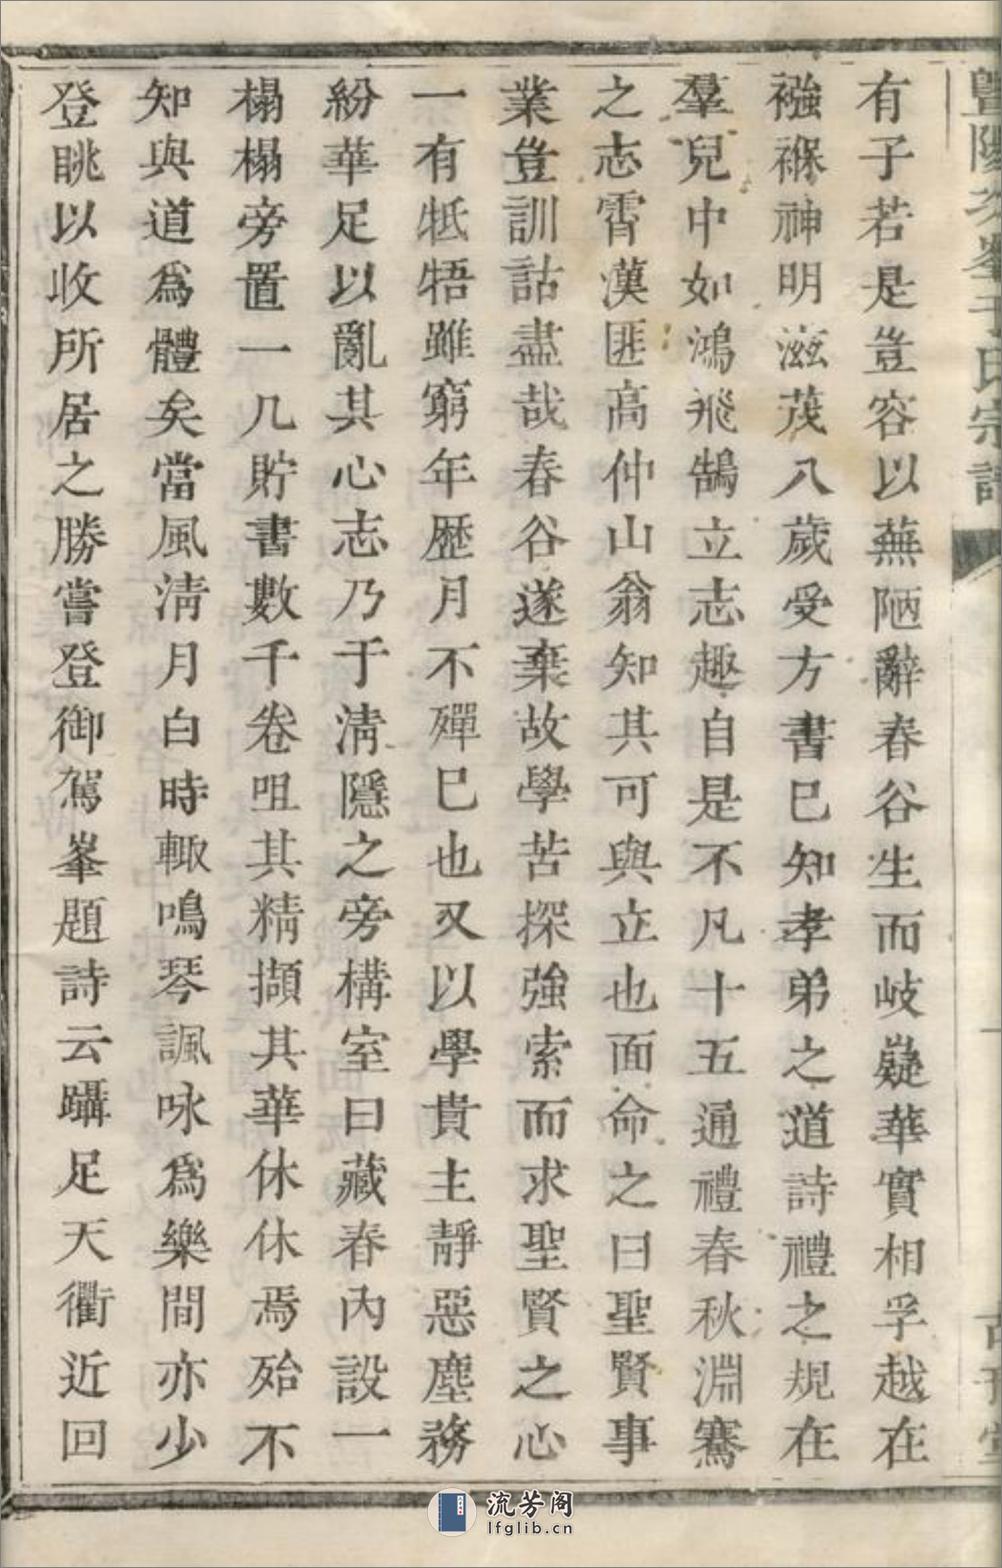 有子若是豈容以蕪陋辭春谷生而岐嶷華實相孚越在
襁褓神明滋茂八歲受方書巳知孝弟之道詩禮之規在
羣兒中如鴻飛鵠立志趣自是不凡十五通禮春秋淵騫
之志霄漢匪高仲山翁知其可與立也面命之曰聖賢事
業豈訓詁盡哉春谷遂棄故學苦探強索而求聖賢之心
一有牴牾雖窮年歷月不殫巳也又以學貴主靜惡塵務
紛華足以亂其心志乃于淸隱之旁構室曰藏春內設一
榻榻旁置一几貯書數千卷咀其精擷其華休休焉殆不
知與道爲體矣當風淸月白時輙鳴琴諷咏爲樂間亦少
登眺以收所居之勝嘗登御駕峯題詩云躡足天衢近回
流芳阁
lfglib.cn